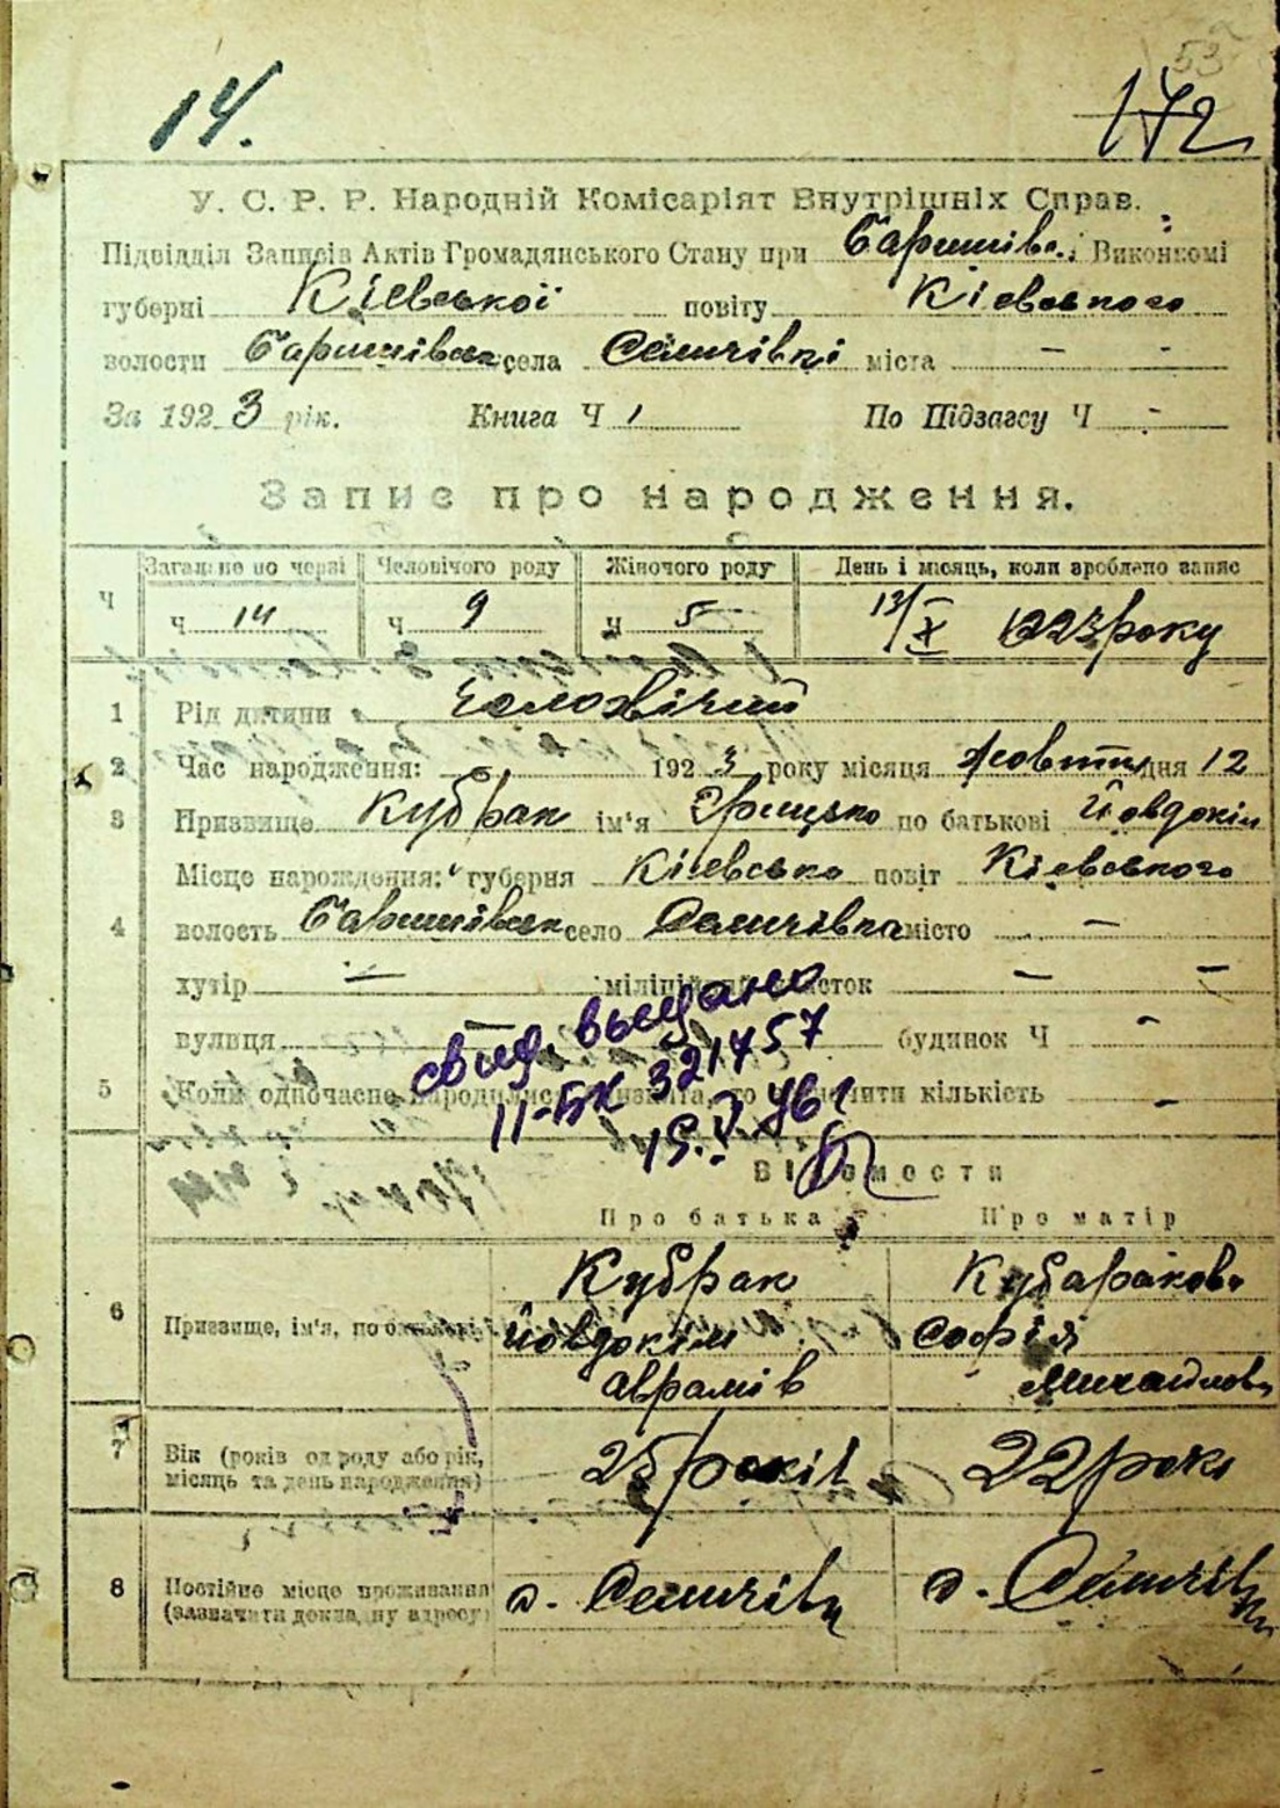 53
14.
172
У. С. Р. Р. Народній Комісаріят Внутрішніх Справ.
Підвідділ Записів Актів Громадянського Стану при Баришів. Виконкомі
губерні Кіевської повіту Кіевського
волости Баришівськ села Селичівкі міста — -
За 1923 рік. Книга Ч 1 По Підзагсу Ч -
Запис про народження.
Ч Загальне по черзі Человічого роду Жіночого роду День і місяць, коли зроблено запис
ч 14 ч 9 ч 5 13/X 1923 року
1 Рід дитини Человічий
2 Час народження: 1923 року місяця Жовтня дня 12
3 Призвище Кубрак ім'я Грицько по батькові Йовдокім
Місце народження: губерня Кіевсько повіт Кіевського
4 волость Баришівськ село Селичівка місто —
хутір — міліційний участок — —
вулиця — будинок Ч -
свид. выдано
II-БК 321457
15.V 46 г
5 Коли одночасно народилися близнята, то зазначити кількість -
Відомости
Про батька Про матір
6 Призвище, ім'я, по батькові Кубрак Кубаракова
Йовдокім Софія
Аврамів Михайлова
7 Вік (років од роду або рік, місяць та день народження) 25 років 22 роки
8 Постійне місце проживання (зазначити докладну адресу) с. Селичівц с. Селичівки